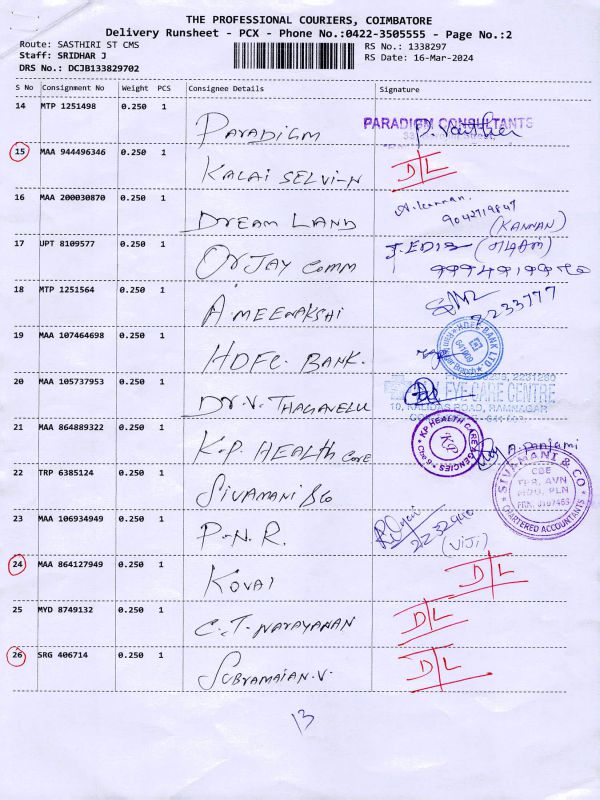 THE PROFESSIONAL COURIERS, COIMBATORE
Delivery Runsheet - PCX - Phone No.:0422-3505555 - Page No.:2
Route: SASTHIRI ST CMS
RS No.: 1338297
Staff: SRIDHAR J
RS Date: 16-Mar-2024
DRS No.: DCJB133829702
S No Consignment No Weight PCS Consignee Details Signature
14 MTP 1251498 0.250 1 PARADIGM PARADIGM CONSULTANTS
15 MAA 944496346 0.250 1 KALAI SELVI-N D/L
16 MAA 200030870 0.250 1 DREAM LAND A. Kannan.
9042719847
(KANNAN)
17 UPT 8109577 0.250 1 ORJAY COMM
18 MTP 1251564 0.250 1 AMEENAKSHI 2233777
19 MAA 107464698 0.250 1 HDFC. BANK. HDFC BANK LTD
20 MAA 105737953 0.250 1 DR.V. THAGAVELU EYE CARE CENTRE
10, KALIDAS ROAD, RAMNAGAR
21 MAA 864889322 0.250 1 K.P. HEALTH CARE KP HEALTH CARE AGENCIES
KP
22 TRP 6385124 0.250 1 SIVAMANI & Co SIVAMANI & CO
CBE
CHARTERED ACCOUNTANTS
23 MAA 106934949 0.250 1 P.N.R. (VIJI)
24 MAA 864127949 0.250 1 KOVAI D/L
25 MYD 8749132 0.250 1 C.T. NARAYANAN D/L
26 SRG 406714 0.250 1 SUBRAMAIAN.V. D/L
13